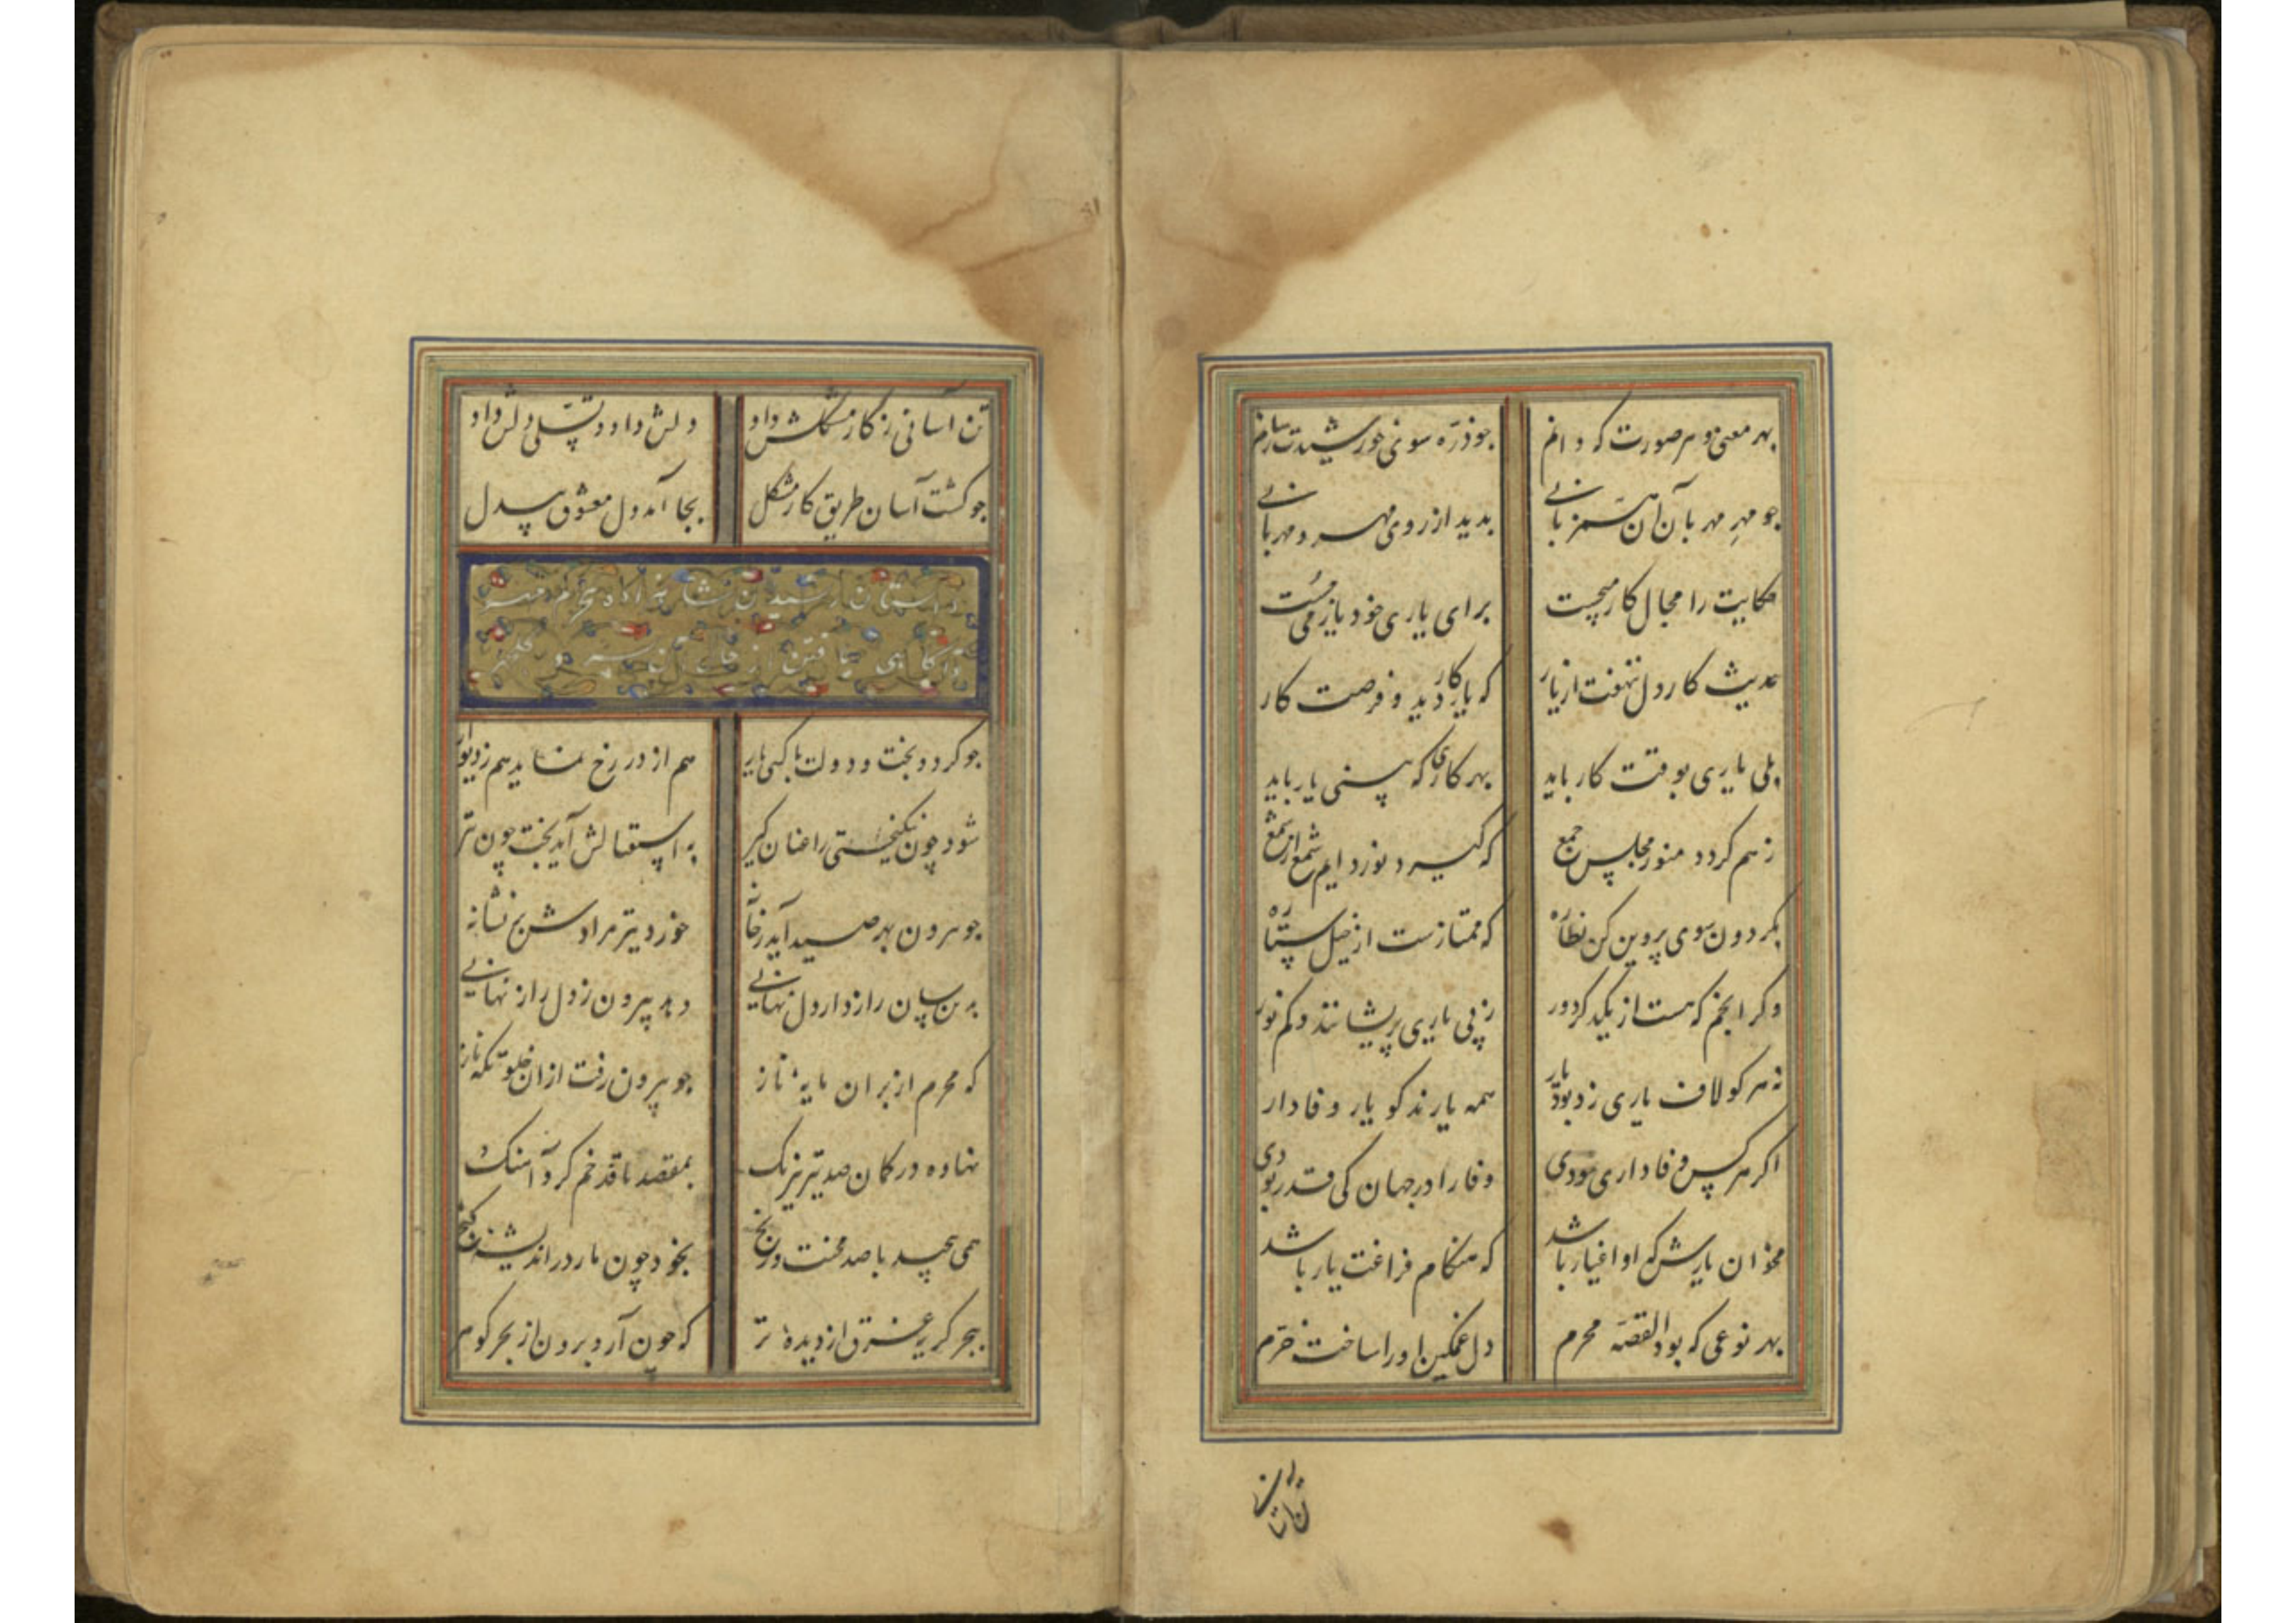 بهر معنی و هر صورت که دانم چو ذره سوی خورشیدت رسانم
چو مهر مهربان آن همزبانی بدید از روی مهر و مهربانی
حکایت را مجال کار میجست برای یاری خود باز می جست
حدیث کار دل ننهفت از یار که یار کار دید و فرصت کار
بلی یاری بوقت کار باید بهر کاری که بینی یار باید
زهم کردد منور مجلس جمع که گیرد نور دایم شمع از شمع
بگردون سوی پروین کن نظاره که ممتازست از خیل ستاره
وگر انجم که هست از یکدگر دور ز بی یاری پریشانند و کم نور
نه هر کو لاف یاری زد بود یار همه یارند کو یار وفادار
اگر هرکس وفاداری نمودی وفا را در جهان کی قدر بودی
مخوان یارش که او اغیار باشد که هنگام فراغت یار باشد
بهر نوعی که بود القصه محرم دل غمگین او را ساخت خرم
تن آسانی ز
تن آسانی ز کار مشکلش داد دلش داد و تسلی دلش داد
چو گشت آسان طریق کار مشکل بجا آمد دل معشوق بیدل
داستان رسیدن
و آگاهی یافتن از
چو گردد بخت و دولت با کسی یار هم از در رخ نماید هم ز دیوار
شود چون نیکبختی را عنان گیر به استقبالش آید بخت چون تیر
چو بیرون بهر صید آید ز خانه خورد تیر مرادش بر نشانه
بدین سان رازدار دل نهانی دهد بیرون ز دل راز نهانی
که محرم از بر آن مایه ناز چو بیرون رفت از آن خلوتگه ناز
نهاده در کمان صد تیر نیرنگ بمقصد با قد خم کرد آهنگ
همی پیچید با صد محنت و رنج بخود چون مار در اندیشه گنج
ببحر گریه غرق از دیده تر که چون آرد برون از بحر گوهر